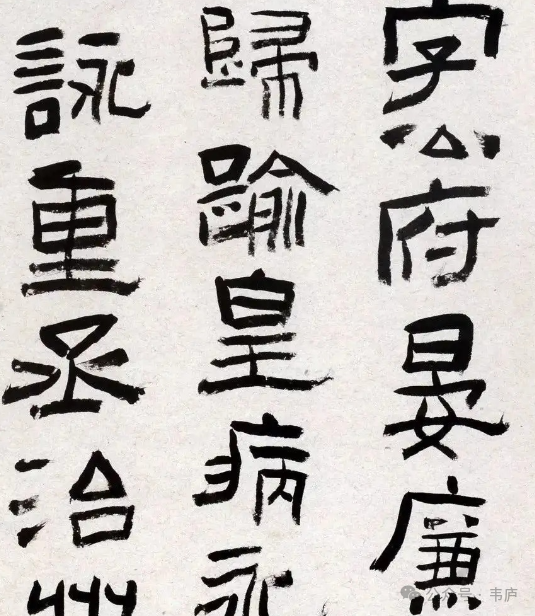 字公府晏廉
歸踰皇病永
詠重丞治
公众号 · 韦庐